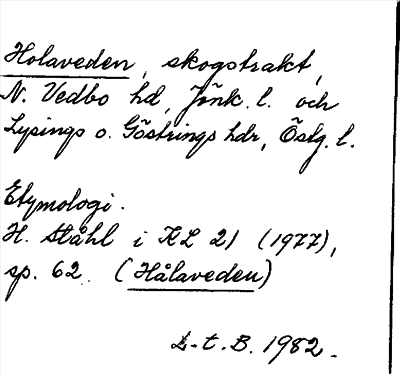 Holaveden, skogstrakt,
N. Vedbo hd, Jönk. l. och
Lysings o. Göstrings hdr, Östg. l.
Etymologi.
H. Ståhl i KL 21 (1977),
sp. 62. (Hålaveden)
L-t. B. 1982.